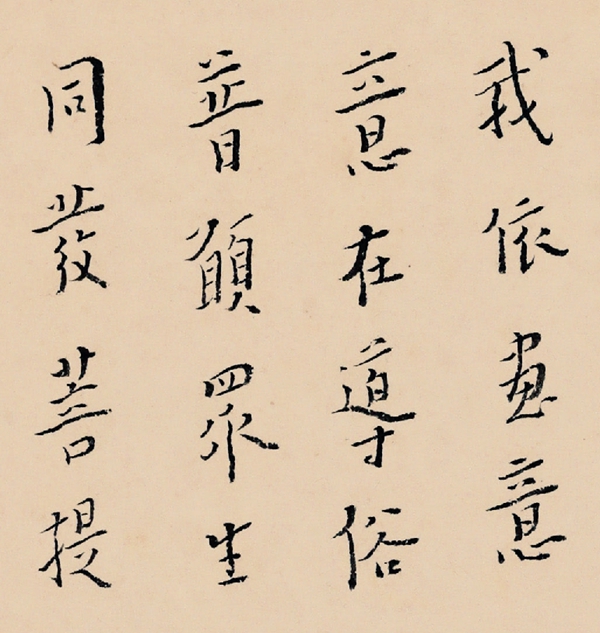 我依畫意
意在導俗
普願眾生
同發菩提